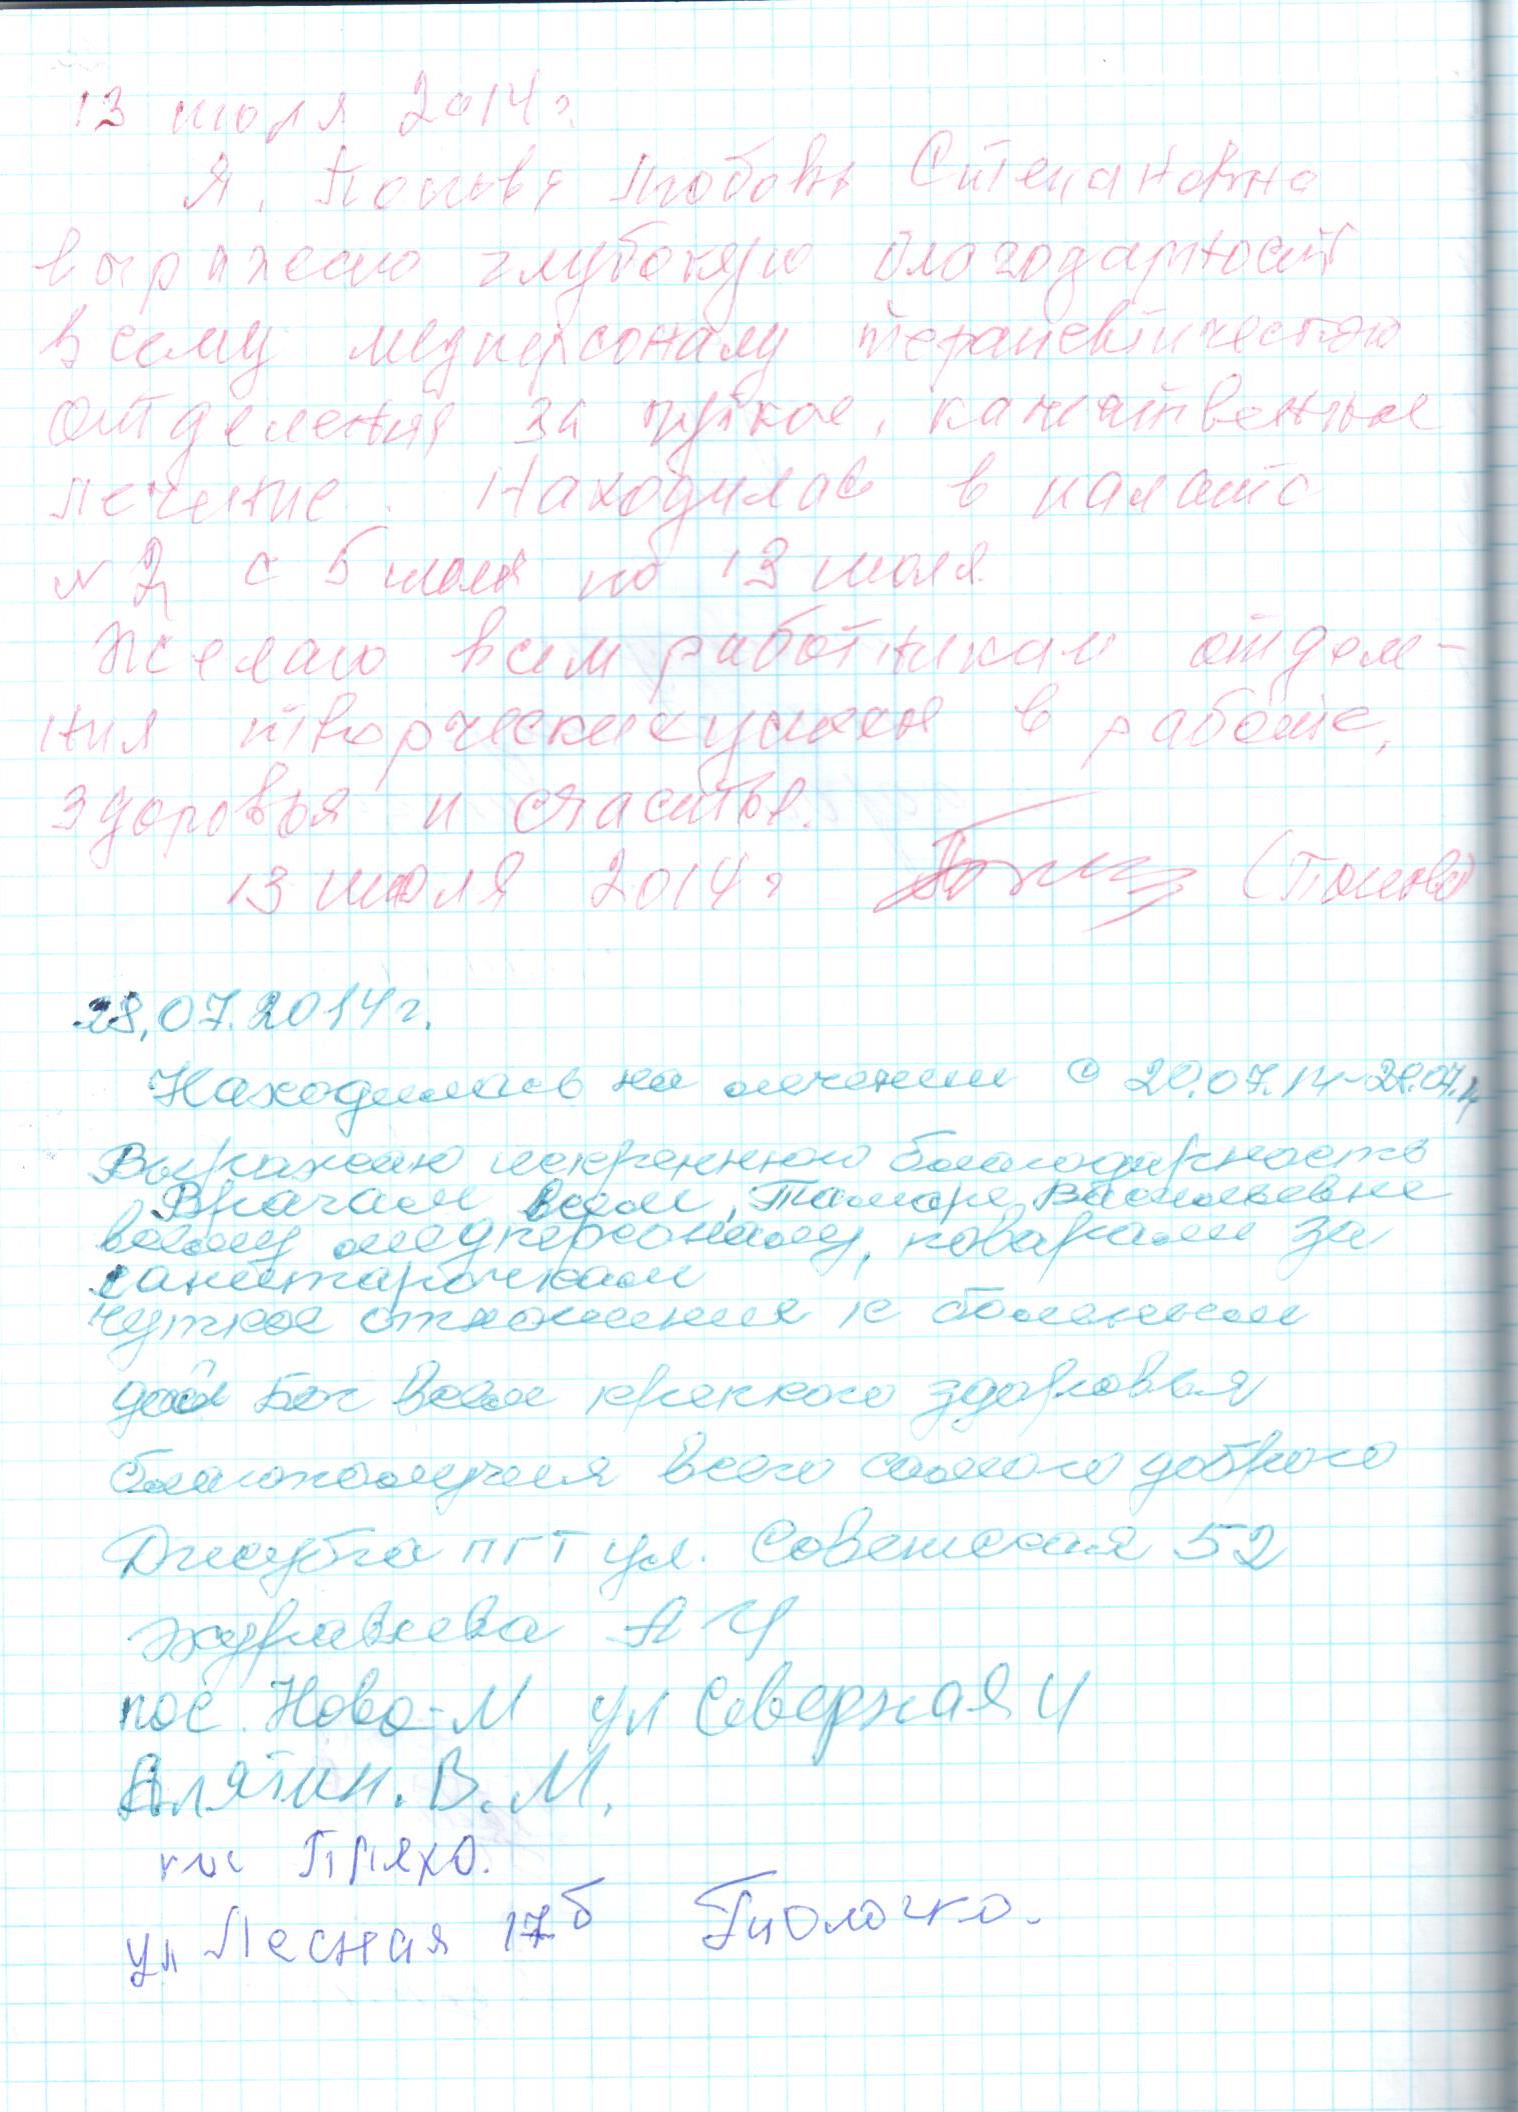 13 июля 2014г.
Я, Попова Любовь Степановна
выражаю глубокую благодарность
всему медперсоналу терапевтического
отделения за чуткое, качественное
лечение. Находилась в палате
№2 с 5 июля по 13 июля.
Желаю всем работникам отделе-
ния творческих успехов в работе,
здоровья и счастья.
13 июля 2014г (Попова)
28.07.2014г.
Находилась на лечении с 20.07.14-28.07.14
Выражаю искреннюю благодарность
Врачам всем, Тамаре Васильевне
всему медперсоналу, поварам за
санитарочкам
чуткое отношения к больным
дай Бог Всем крепкого здоровья
благополучия всего самого доброго
Джубга ПГТ ул. Советская 52
Журавлева А
пос. Ново-М ул Северная 4
Алятин. В. М.
пос Пляхо.
ул Лесная 17б